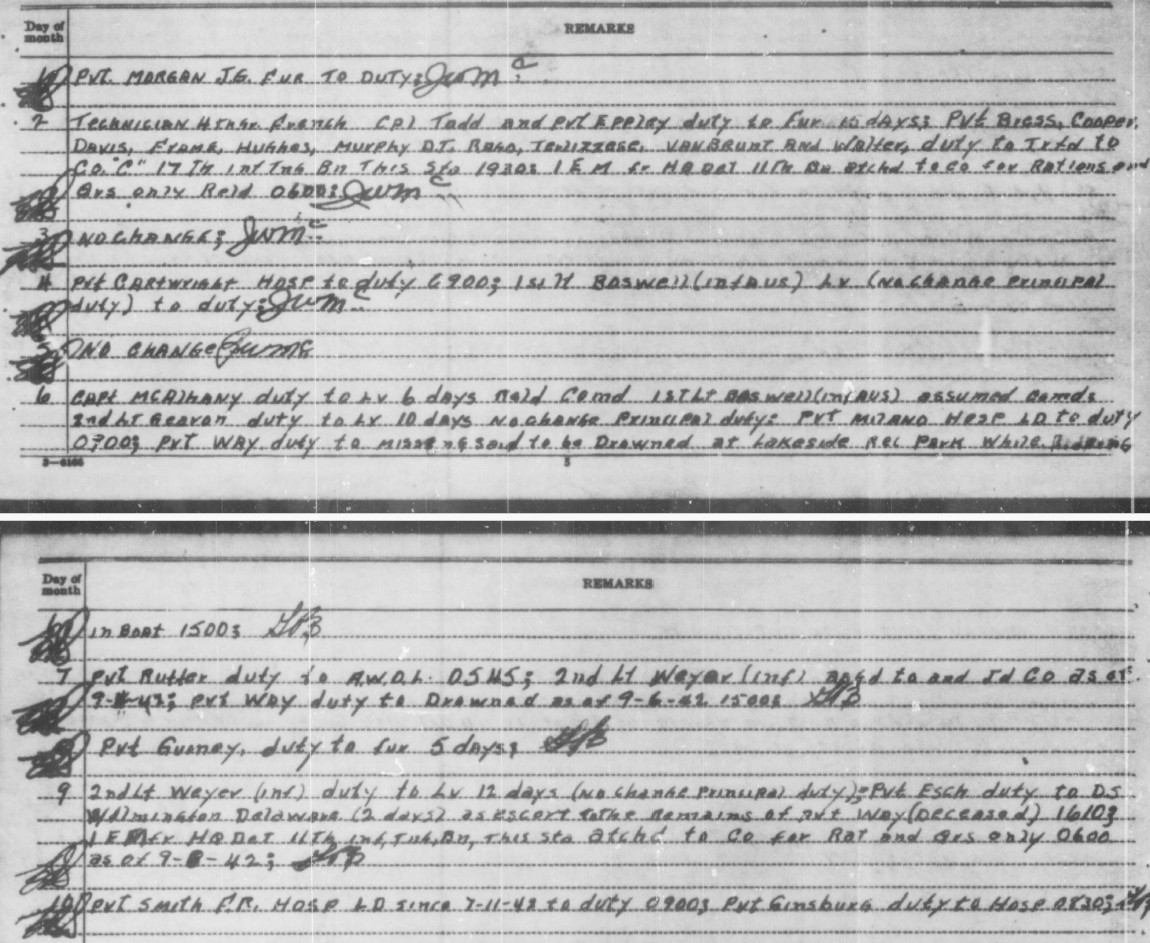 Day of month REMARKS
1 Pvt. MORGAN J.G. FUR TO DUTY; JWMc
2 Technician 4th gr. French Cpl Todd and Pvt Eppley duty to Fur 15 days; Pvt Biggs, Cooper,
Davis, Frame, Hughes, Murphy D.T. Rago, VanBrunt and Walter, duty to Trfd to
Co. "C" 17Th inf Tng Bn This Sta 1930; 1 E M fr HQ Det 11Th Bn atchd to Co for Rations and
Qrs only Reld 0600; JWMc
3 NO CHANGE; JWMc
4 Pvt CARTWRIGHT HOSP to duty 0900; 1st lt Boswell (inf AUS) Lv (No change Principal
duty) to duty; JWMc
5 NO CHANGE JWMc
6 Capt McAlhany duty to Lv 6 days Reld Comd 1st Lt Boswell (inf AUS) assumed Comd;
2nd Lt Gearon duty to Lv 10 days No change Principal duty; Pvt Milano Hosp LD to duty
0700; Pvt Way duty to missing said to be Drowned at Lakeside Rec Park While Riding
3—6166 3
Day of month REMARKS
in Boat 1500;
7 Pvt Rutter duty to A.W.O.L. 0545; 2nd Lt Weyer (inf) asgd to and Jd Co as of
Pvt Way duty to Drowned as of 9-6-42 1500;
8 Pvt duty to fur 5 days;
9 2nd Lt Weyer (inf) duty to Lv 12 days (No change Principal duty); Pvt Esch duty to DS
Wilmington Delaware (2 days) as escort to the Remains of Pvt Way (Deceased) 1610;
1 E M fr HQ Det 11Th inf, Tng, Bn, This sta atchd to Co for Rat and Qrs only 0600
as of 9-8-42;
10 Pvt Smith F.R. Hosp LD since 7-11-42 to duty 0900; Pvt Ginsburg duty to Hosp 0830;